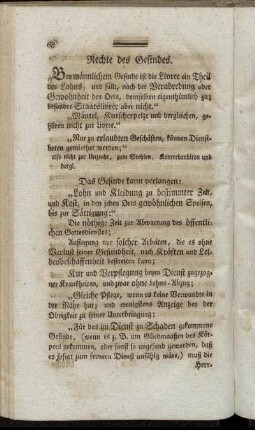 Rechte des Gesindes.
„Bey männlichem Gesinde ist die Livree ein Theil
des Lohns; und fällt, nach der Verabredung oder
Gewohnheit des Orts, demselben eigenthümlich zu;
besondre Staatslivree aber nicht.“
„Mäntel, Kutscherpelze und dergleichen, ge-
hören nicht zur Livree.“
„Nur zu erlaubten Geschäften, können Dienst-
boten gemiethet werden;“
also nicht zur Unzucht, zum Stehlen, Kontrebandiren und
dergl.
Das Gesinde kann verlangen:
„Lohn und Kleidung zu bestimmter Zeit,
und Kost, in den jeden Orts gewöhnlichen Speisen,
bis zur Sättigung;“
Die nöthige Zeit zur Abwartung des öffentli-
chen Gottesdienstes;
Auflegung nur solcher Arbeiten, die es ohne
Verlust seiner Gesundheit, nach Kräften und Lei-
desbeschaffenheit bestreiten kann;
Kur und Verpflegung beym Dienst zugezog-
ner Krankheiten, und zwar ohne Lohns-Abzug;
„Gleiche Pflege, wenn es keine Verwandte in
der Nähe hat; und wenigstens Anzeige bey der
Obrigkeit zu seiner Unterbringung;
„Für das im Dienst zu Schaden gekommene
Gesinde, (wenn es z. B. um Gliedmaaßen des Kör-
pers gekommen, oder sonst so ungesund geworden, daß
es sofort zum fernern Dienst unfähig wäre,) muß die
Herr-